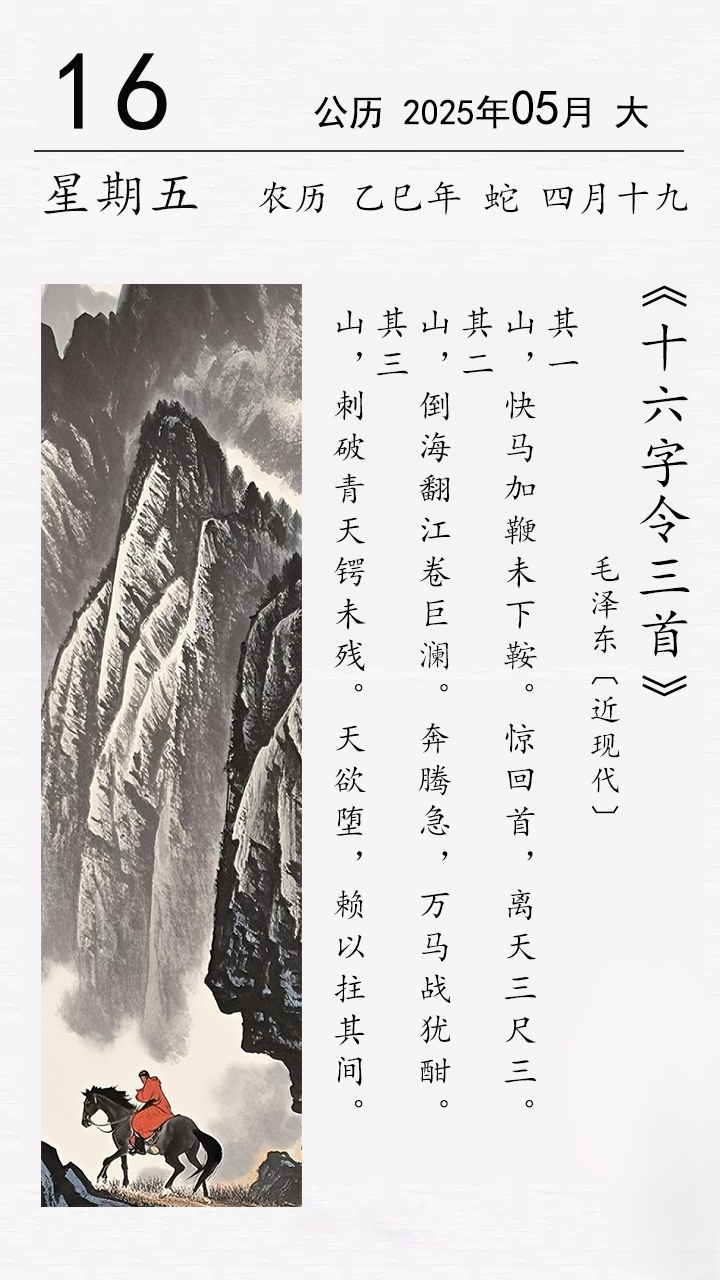 16
公历 2025年05月 大
星期五 农历 乙巳年 蛇 四月十九
《十六字令三首》
毛泽东〔近现代〕
其一
山，快马加鞭未下鞍。惊回首，离天三尺三。
其二
山，倒海翻江卷巨澜。奔腾急，万马战犹酣。
其三
山，刺破青天锷未残。天欲堕，赖以拄其间。